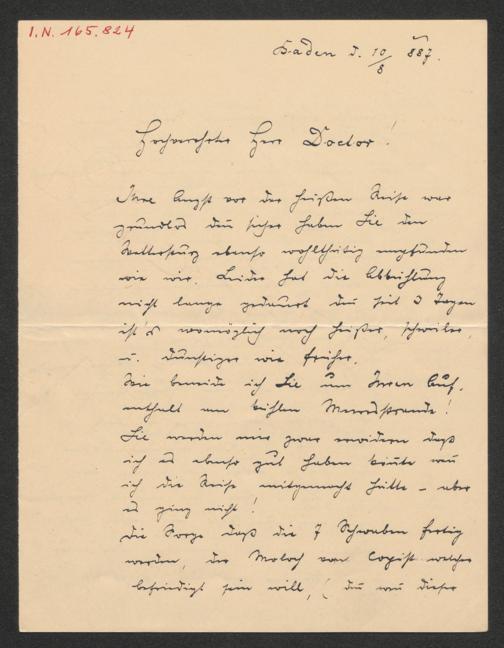 I.N. 165.824
Baden d. 10/8 887.
Hochverehrter Herr Doctor!
Ihre Angst vor der heißen Reise war
grundlos denn sicher haben Sie den
Wettersturz ebenso wohlthätig empfunden
wie wir. Leider hat die Abkühlung
nicht lange gedauert denn seit 3 Tagen
ist's womöglich noch heißer, schwüler,
u. dunstiger wie früher.
Wie beneide ich Sie um Ihren Auf-
enthalt am kühlen Meeresstrande!
Sie werden mir zwar erwidern daß
ich es ebenso gut haben könnte wenn
ich die Reise mitgemacht hätte – aber
es ging nicht!
Die Sorge daß die 7 Schwaben fertig
werden, der Moloch von Copist welcher
befriedigt sein will, (denn wenn dieser